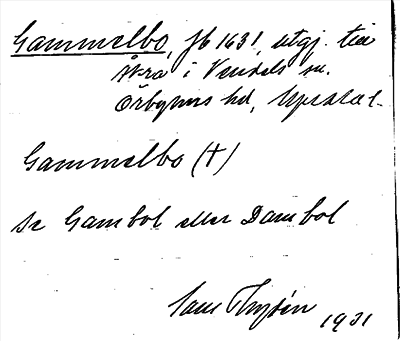 Gammelbo, Jb 1631, utgj. till
Åkra i Vendels sn.
Örbyhus hd, Uppsala l.
Gammelbo (†)
se Gambol eller Dambol
1931